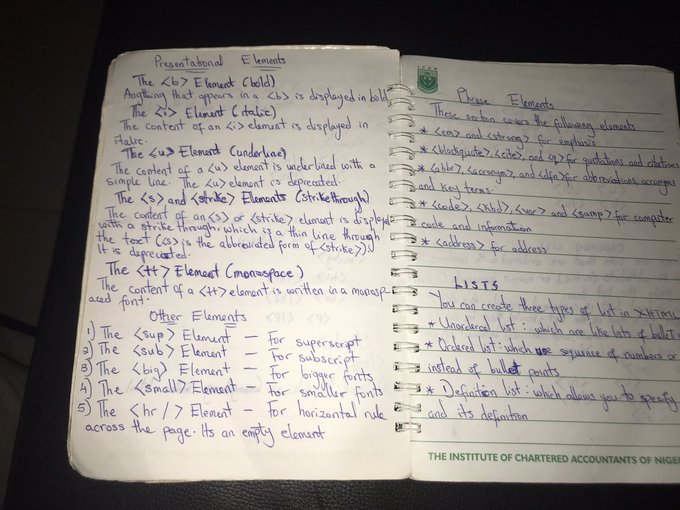 Presentational Elements
The <b> Element (bold)
Anything that appears in a <b> is displayed in bold
The <i> Element (italic)
The content of an <i> element is displayed in
italic.
The <u> Element (underline)
The content of a <u> element is underlined with a
simple line. The <u> element is deprecated.
The <s> and <strike> Elements (strikethrough)
The content of an <s> or <strike> element is displayed
with a strike through, which is a thin line through
the text (<s> is the abbreviated form of <strike>).
It is deprecated.
The <tt> Element (monospace)
The content of a <tt> element is written in a monosp-
aced font.
Other Elements
1) The <sup> Element – For superscript
2) The <sub> Element – For subscript
3) The <big> Element – For bigger fonts
4) The <small> Element – For smaller fonts
5) The <hr/> Element – For horizontal rule
across the page. Its an empty element
Phrase Elements
These section covers the following elements
* <em> and <strong> for emphasis
* <blockquote>, <cite>, and <q> for quotations and citations
* <abbr>, <acronym>, and <dfn> for abbreviations, acronyms
and key terms.
* <code>, <kbd>, <var> and <samp> for computer
code and information
* <address> for address
LISTS
You can create three types of list in XHTML
* Unordered list: which are like lists of bullets
* Ordered list: which use sequence of numbers or
instead of bullet points
* Definition list: which allows you to specify
and its definition
THE INSTITUTE OF CHARTERED ACCOUNTANTS OF NIGE